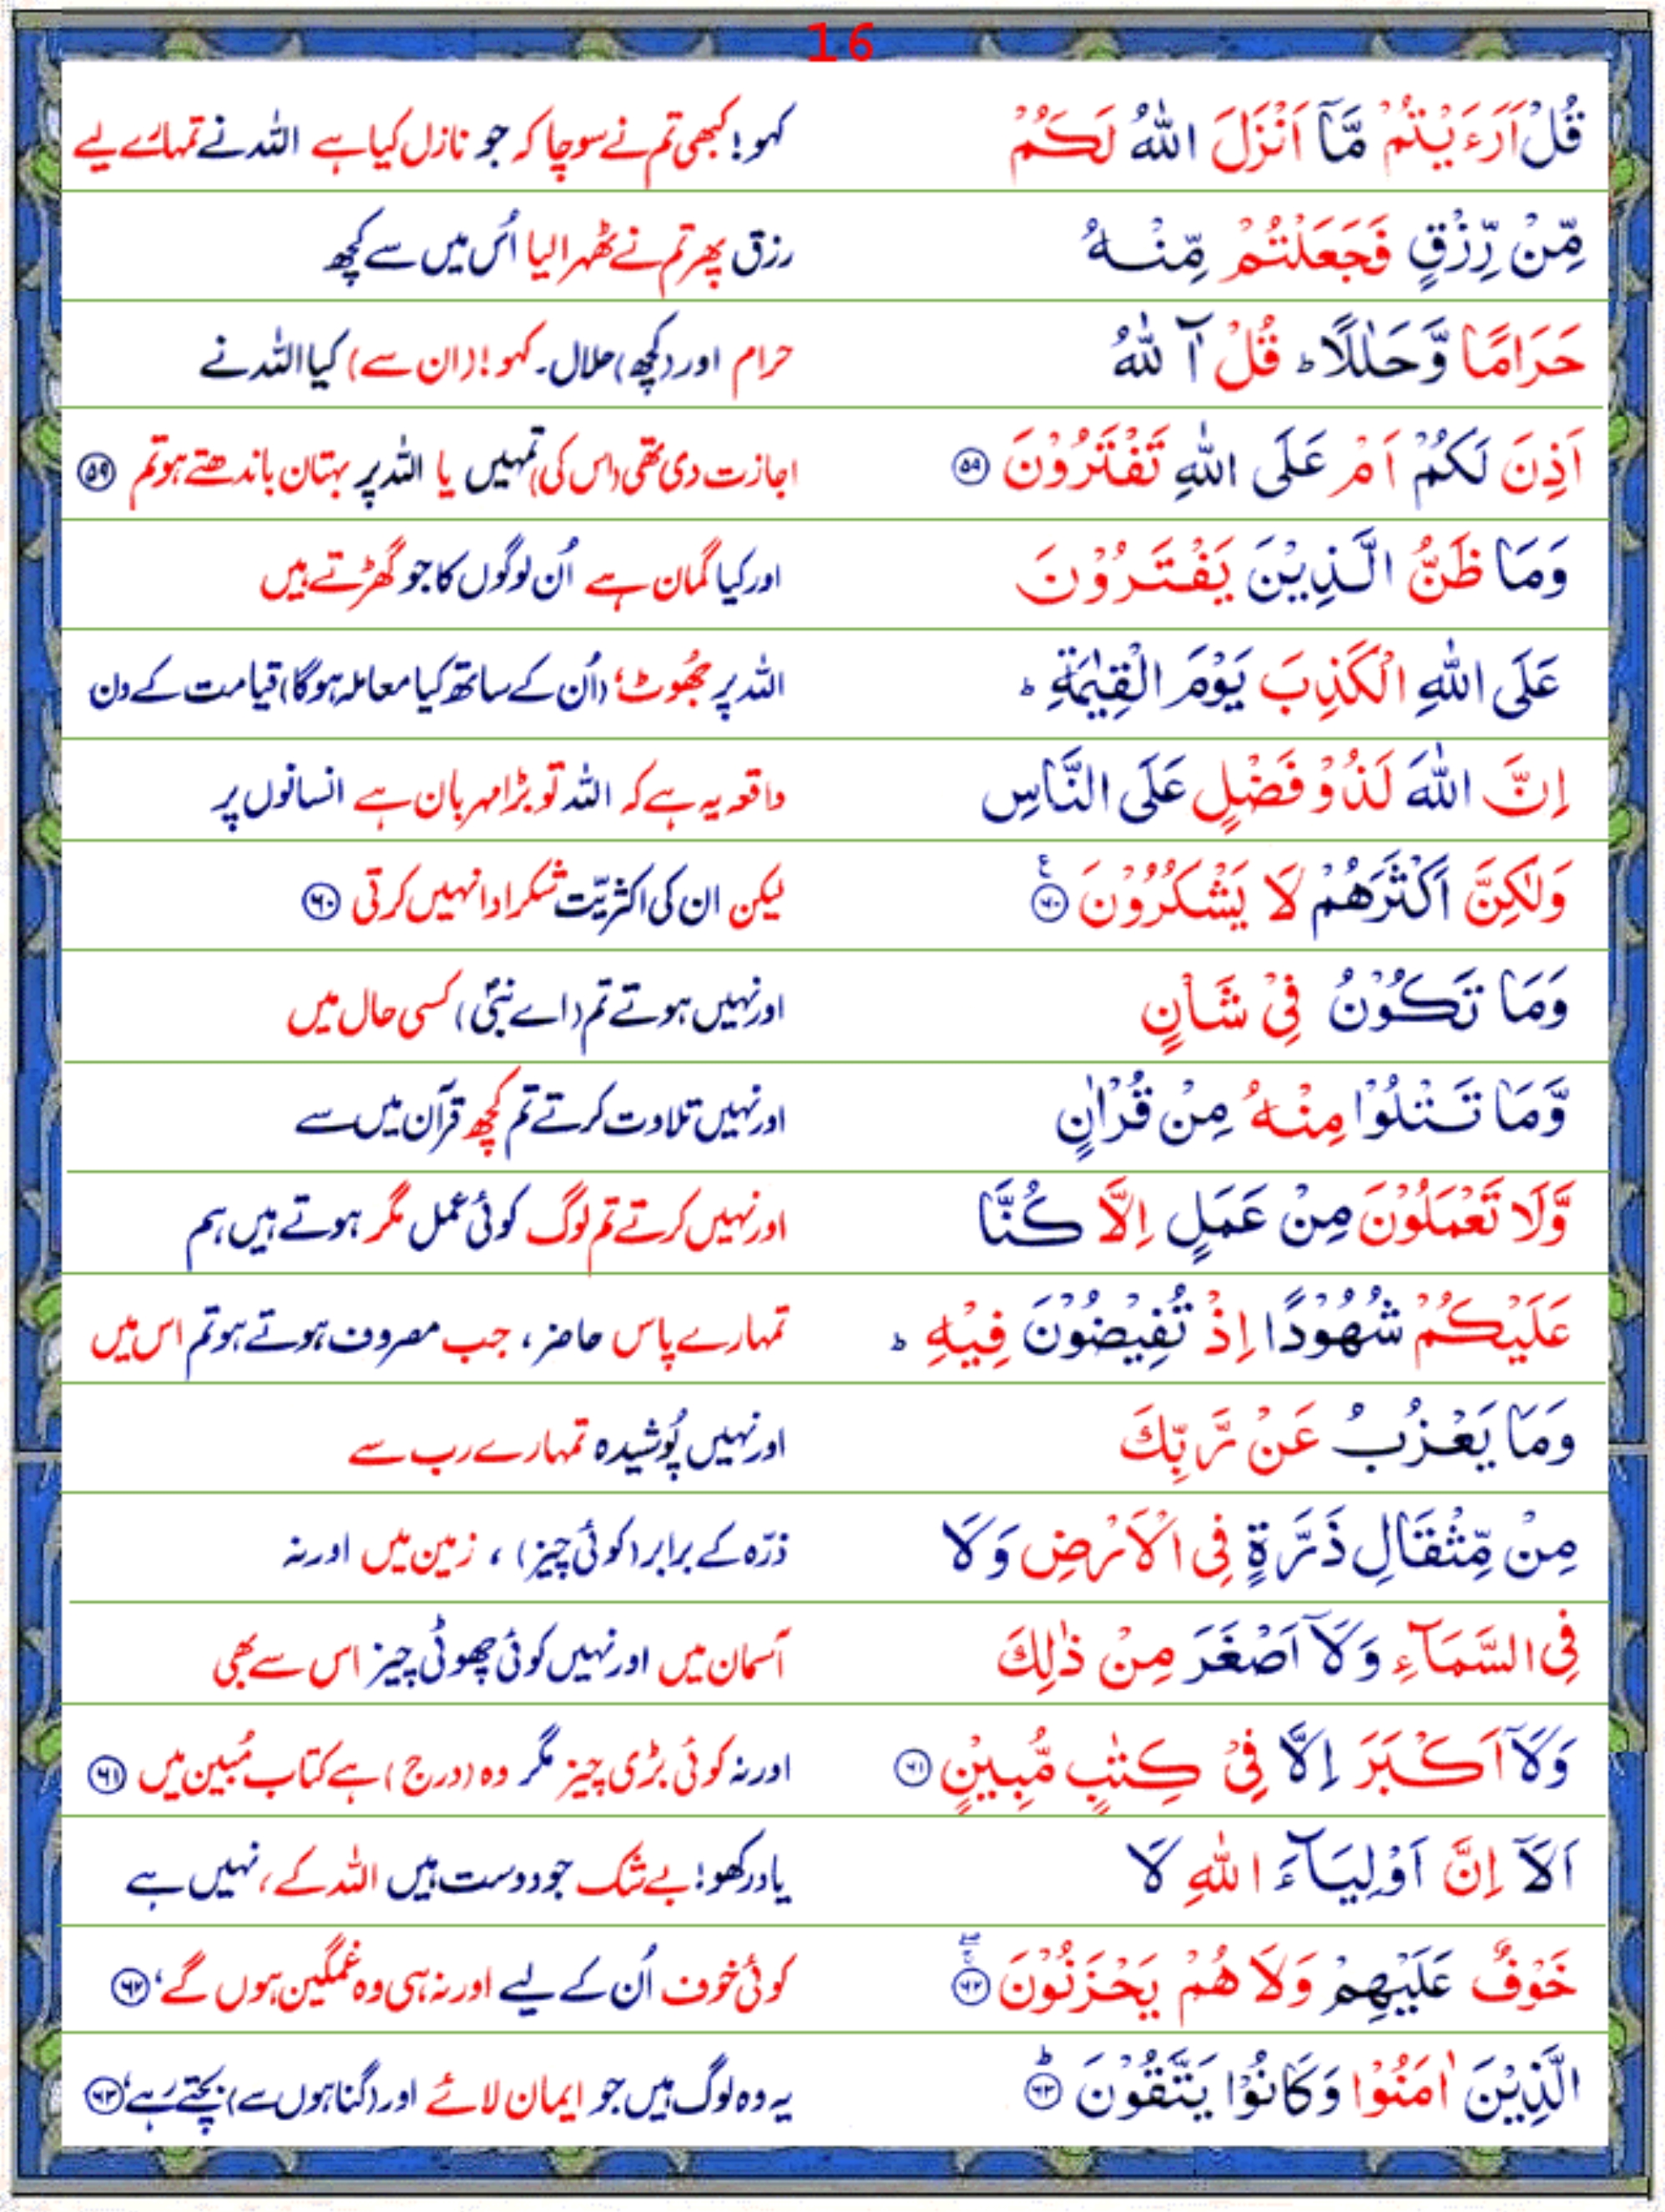 16
قُلْ اَرَءَيْتُمْ مَّآ اَنْزَلَ اللّٰهُ لَكُمْ کہو! کبھی تم نے سوچا کہ جو نازل کیا ہے اللہ نے تمہارے لیے
مِّنْ رِّزْقٍ فَجَعَلْتُمْ مِّنْهُ رزق پھر تم نے ٹھہرا لیا اُس میں سے کچھ
حَرَامًا وَّحَلٰلًا ؕ قُلْ آٰللّٰهُ حرام اور (کچھ) حلال۔ کہو! (ان سے) کیا اللہ نے
اَذِنَ لَكُمْ اَمْ عَلَى اللّٰهِ تَفْتَرُوْنَ ﴿۵۹﴾ اجازت دی تھی (اس کی) تمہیں یا اللہ پر بہتان باندھتے ہو تم ﴿۵۹﴾
وَمَا ظَنُّ الَّذِيْنَ يَفْتَرُوْنَ اور کیا گمان ہے اُن لوگوں کا جو گھڑتے ہیں
عَلَى اللّٰهِ الْكَذِبَ يَوْمَ الْقِيٰمَةِ ؕ اللہ پر جھُوٹ، (اُن کے ساتھ کیا معاملہ ہوگا) قیامت کے دن
اِنَّ اللّٰهَ لَذُوْ فَضْلٍ عَلَى النَّاسِ واقعہ یہ ہے کہ اللہ تو بڑا مہربان ہے انسانوں پر
وَلٰكِنَّ اَكْثَرَهُمْ لَا يَشْكُرُوْنَ ﴿۶۰﴾ ع لیکن ان کی اکثریّت شکر ادا نہیں کرتی ﴿۶۰﴾
وَمَا تَكُوْنُ فِيْ شَاْنٍ اور نہیں ہوتے تم (اے نبیؐ) کسی حال میں
وَّمَا تَتْلُوْا مِنْهُ مِنْ قُرْاٰنٍ اور نہیں تلاوت کرتے تم کچھ قرآن میں سے
وَّلَا تَعْمَلُوْنَ مِنْ عَمَلٍ اِلَّا كُنَّا اور نہیں کرتے تم لوگ کوئی عمل مگر ہوتے ہیں ہم
عَلَيْكُمْ شُهُوْدًا اِذْ تُفِيْضُوْنَ فِيْهِ ؕ تمہارے پاس حاضر، جب مصروف ہوتے ہو تم اس میں
وَمَا يَعْزُبُ عَنْ رَّبِّكَ اور نہیں پُوشیدہ تمہارے رب سے
مِنْ مِّثْقَالِ ذَرَّةٍ فِي الْاَرْضِ وَلَا ذرّہ کے برابر (کوئی چیز) ، زمین میں اور نہ
فِي السَّمَآءِ وَلَآ اَصْغَرَ مِنْ ذٰلِكَ آسمان میں اور نہیں کوئی چھوٹی چیز اس سے بھی
وَلَآ اَكْبَرَ اِلَّا فِيْ كِتٰبٍ مُّبِيْنٍ ﴿۶۱﴾ اور نہ کوئی بڑی چیز مگر وہ (درج) ہے کتاب مُبین میں ﴿۶۱﴾
اَلَآ اِنَّ اَوْلِيَآءَ اللّٰهِ لَا یاد رکھو! بے شک جو دوست ہیں اللہ کے، نہیں ہے
خَوْفٌ عَلَيْهِمْ وَلَا هُمْ يَحْزَنُوْنَ ﴿۶۲﴾ کوئی خوف اُن کے لیے اور نہ ہی وہ غمگین ہوں گے، ﴿۶۲﴾
الَّذِيْنَ اٰمَنُوْا وَكَانُوْا يَتَّقُوْنَ ﴿۶۳﴾ؕ یہ وہ لوگ ہیں جو ایمان لائے اور (گناہوں سے) بچتے رہے، ﴿۶۳﴾